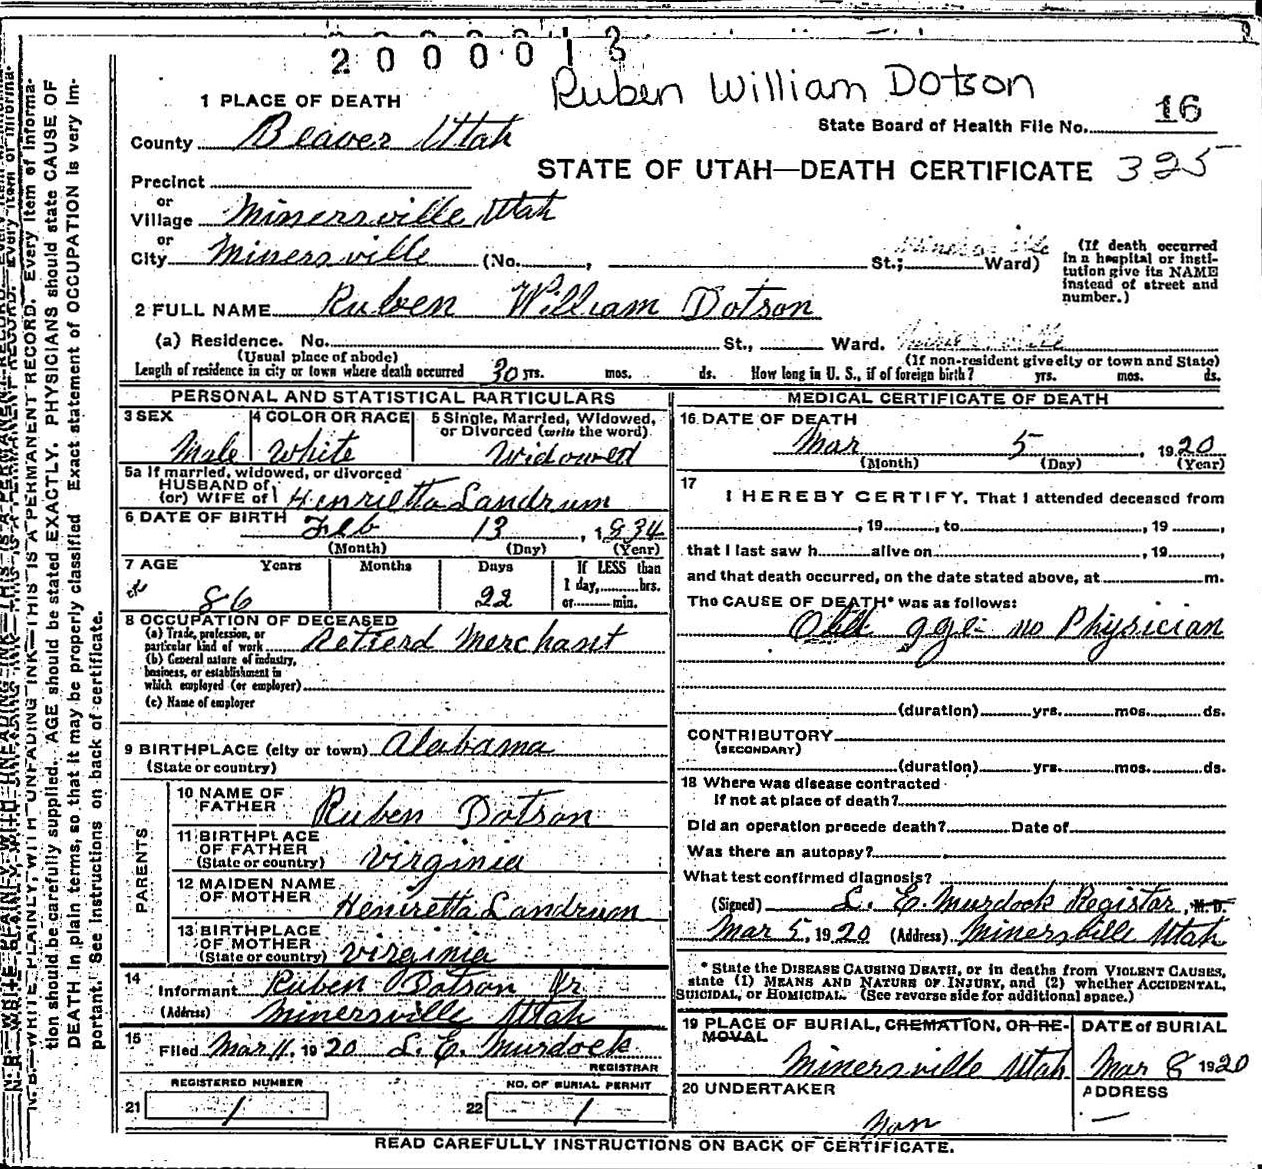 2 0 0 0 0 1 3
Ruben William Dotson
1 PLACE OF DEATH
State Board of Health File No. 16
County Beaver Utah
STATE OF UTAH—DEATH CERTIFICATE 325
Precinct
or
Village Minersville Utah
or
City Minersville (No. , St.; Ward)
(If death occurred in a hospital or institution give its NAME instead of street and number.)
2 FULL NAME Ruben William Dotson
(a) Residence. No. St., Ward.
(Usual place of abode) (If non-resident give city or town and State)
Length of residence in city or town where death occurred 30 yrs. mos. ds. How long in U. S., if of foreign birth? yrs. mos. ds.
PERSONAL AND STATISTICAL PARTICULARS
3 SEX Male
4 COLOR OR RACE White
5 Single, Married, Widowed, or Divorced (write the word) Widowed
5a If married, widowed, or divorced
HUSBAND of
(or) WIFE of Henrietta Landrum
6 DATE OF BIRTH Feb 13, 1834
(Month) (Day) (Year)
7 AGE Years Months Days If LESS than
1 day, hrs.
86 22 or min.
8 OCCUPATION OF DECEASED
(a) Trade, profession, or
particular kind of work Retierd Merchant
(b) General nature of industry,
business, or establishment in
which employed (or employer)
(c) Name of employer
9 BIRTHPLACE (city or town) Alabama
(State or country)
PARENTS
10 NAME OF
FATHER Ruben Dotson
11 BIRTHPLACE
OF FATHER
(State or country) Virginia
12 MAIDEN NAME
OF MOTHER Henrietta Landrum
13 BIRTHPLACE
OF MOTHER
(State or country) Virginia
14
Informant Ruben Dotson Jr
(Address) Minersville Utah
15
Filed Mar 11, 1920 L. E. Murdock
REGISTRAR
REGISTERED NUMBER NO. OF BURIAL PERMIT
21 1 22 1
MEDICAL CERTIFICATE OF DEATH
16 DATE OF DEATH
Mar 5, 1920
(Month) (Day) (Year)
17
I HEREBY CERTIFY, That I attended deceased from
, 19 , to , 19 ,
that I last saw h alive on , 19 ,
and that death occurred, on the date stated above, at m.
The CAUSE OF DEATH* was as follows:
Old age no Physician
(duration) yrs. mos. ds.
CONTRIBUTORY
(SECONDARY)
(duration) yrs. mos. ds.
18 Where was disease contracted
if not at place of death?
Did an operation precede death? Date of
Was there an autopsy?
What test confirmed diagnosis?
(Signed) L. E. Murdock Registar, M. D.
Mar 5, 1920 (Address) Minersville Utah
* State the DISEASE CAUSING DEATH, or in deaths from VIOLENT CAUSES,
state (1) MEANS AND NATURE OF INJURY, and (2) whether ACCIDENTAL,
SUICIDAL, or HOMICIDAL. (See reverse side for additional space.)
19 PLACE OF BURIAL, CREMATION, OR RE-
MOVAL
Minersville Utah
DATE of BURIAL
Mar 8 1920
20 UNDERTAKER
Non
ADDRESS
READ CAREFULLY INSTRUCTIONS ON BACK OF CERTIFICATE.
N. B.—WRITE PLAINLY, WITH UNFADING INK—THIS IS A PERMANENT RECORD. Every item of informa-
tion should be carefully supplied. AGE should be stated EXACTLY. PHYSICIANS should state CAUSE OF
DEATH in plain terms, so that it may be properly classified Exact statement of OCCUPATION is very im-
portant. See instructions on back of certificate.